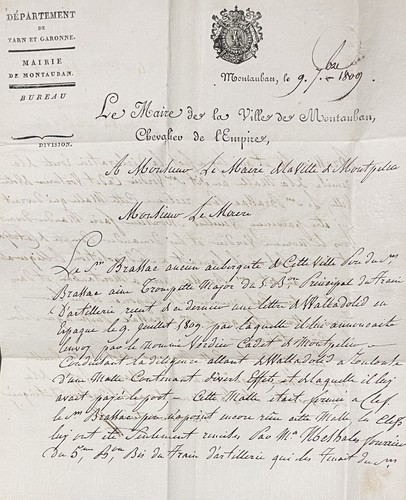 DÉPARTEMENT
DE
TARN ET GARONNE.
MAIRIE
DE MONTAUBAN.
BUREAU
DIVISION.
Montauban, le 9. 7bre 1809
Le Maire de la Ville de Montauban,
Chevalier de l'Empire,
A Monsieur Le Maire de la Ville de Montpellier
Monsieur Le Maire
Le Sr. Brassac ancien aubergiste de Cette Ville Pere du Sr.
Brassac ainé Trompette Major du 5. Bon. Principal du Train
D'artillerie recut de ce dernier une lettre de Walladolid en
Espagne le 9. juillet 1809. par laquelle il lui annoncait
l'envoy par le nommé Verdier Cadet de Montpellier
Conduisant la diligence allant de Walladolid a Toulouse
D'une Malle Contenant divers Effets et de laquelle il luy
avait payé le port - Cette Malle etait fermée a Clef
le Sr. Brassac pere n'a point encore recu cette Malle, les Clefs
luy ont été Seulement remises Par Mr. fourrier
du 5eme. Bon. Bis du Train d'artillerie qui les tenait du Sr.